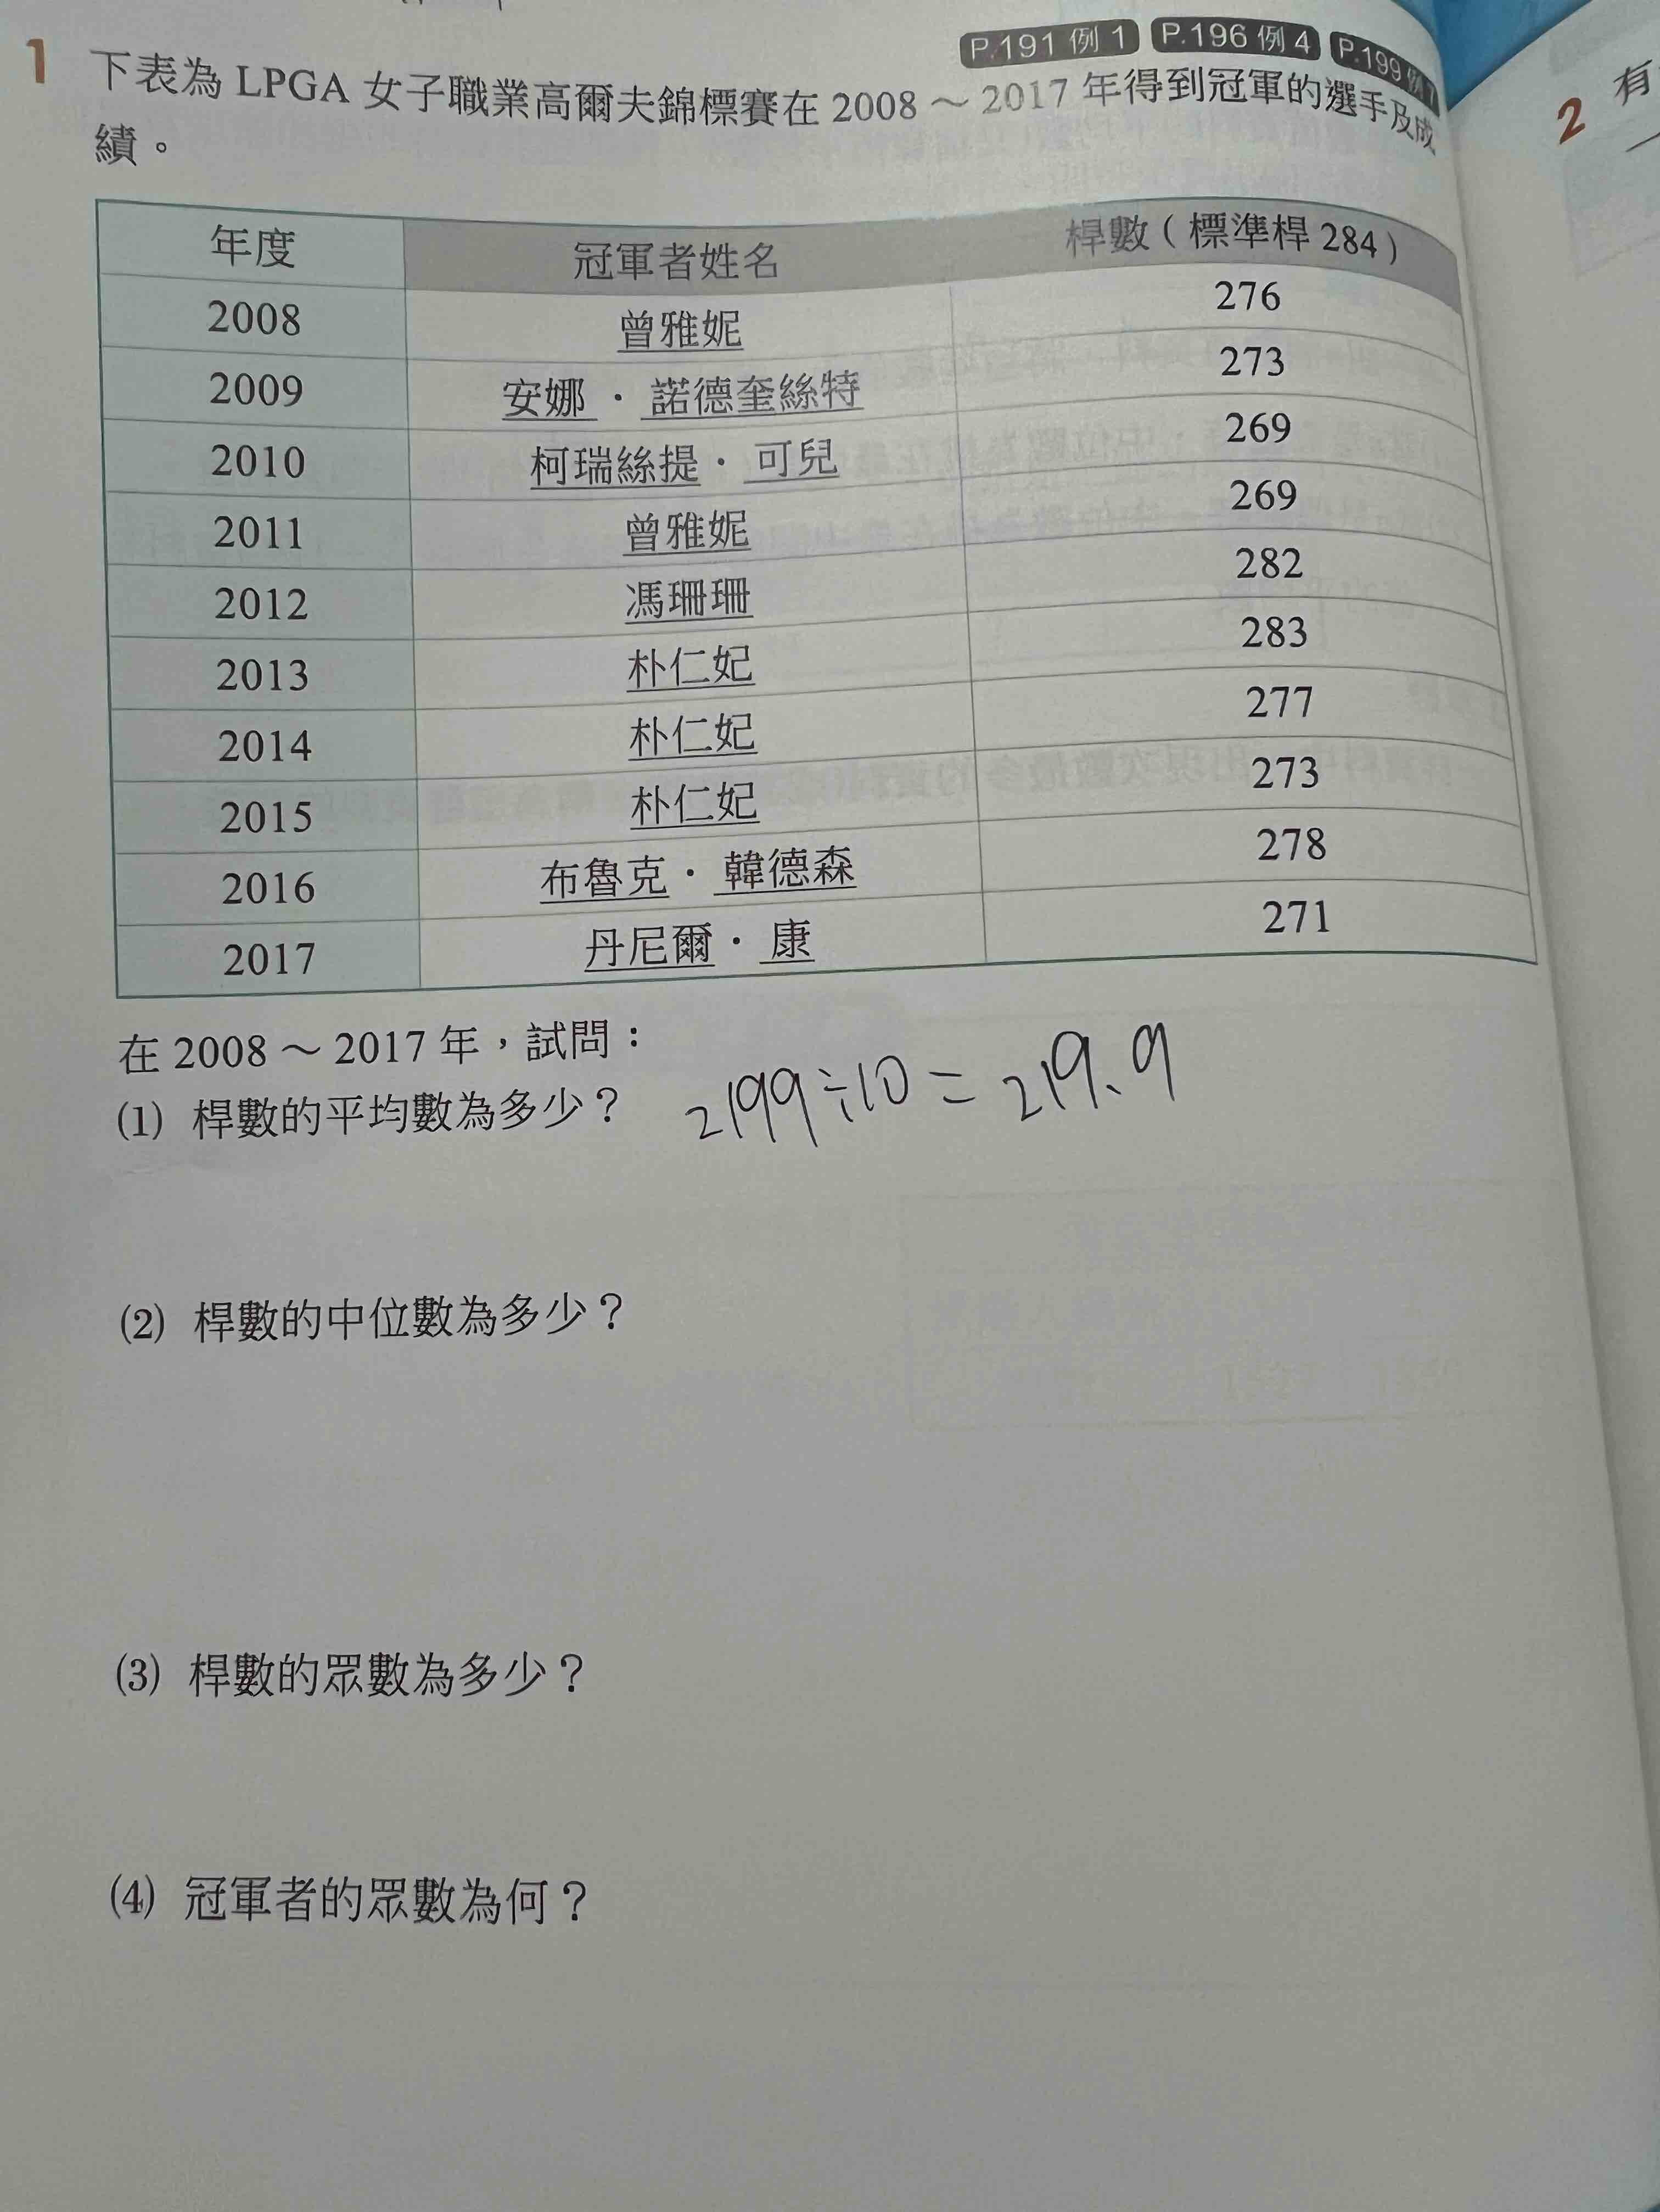 P.191 例 1 P.196 例 4 P.199 例 7
1 下表為 LPGA 女子職業高爾夫錦標賽在 2008 ～ 2017 年得到冠軍的選手及成
績。
年度 冠軍者姓名 桿數（標準桿 284）
2008 曾雅妮 276
2009 安娜．諾德奎絲特 273
2010 柯瑞絲提．可兒 269
2011 曾雅妮 269
2012 馮珊珊 282
2013 朴仁妃 283
2014 朴仁妃 277
2015 朴仁妃 273
2016 布魯克．韓德森 278
2017 丹尼爾．康 271
在 2008 ～ 2017 年，試問：
(1) 桿數的平均數為多少？ 2199÷10 = 219.9
(2) 桿數的中位數為多少？
(3) 桿數的眾數為多少？
(4) 冠軍者的眾數為何？
2 有